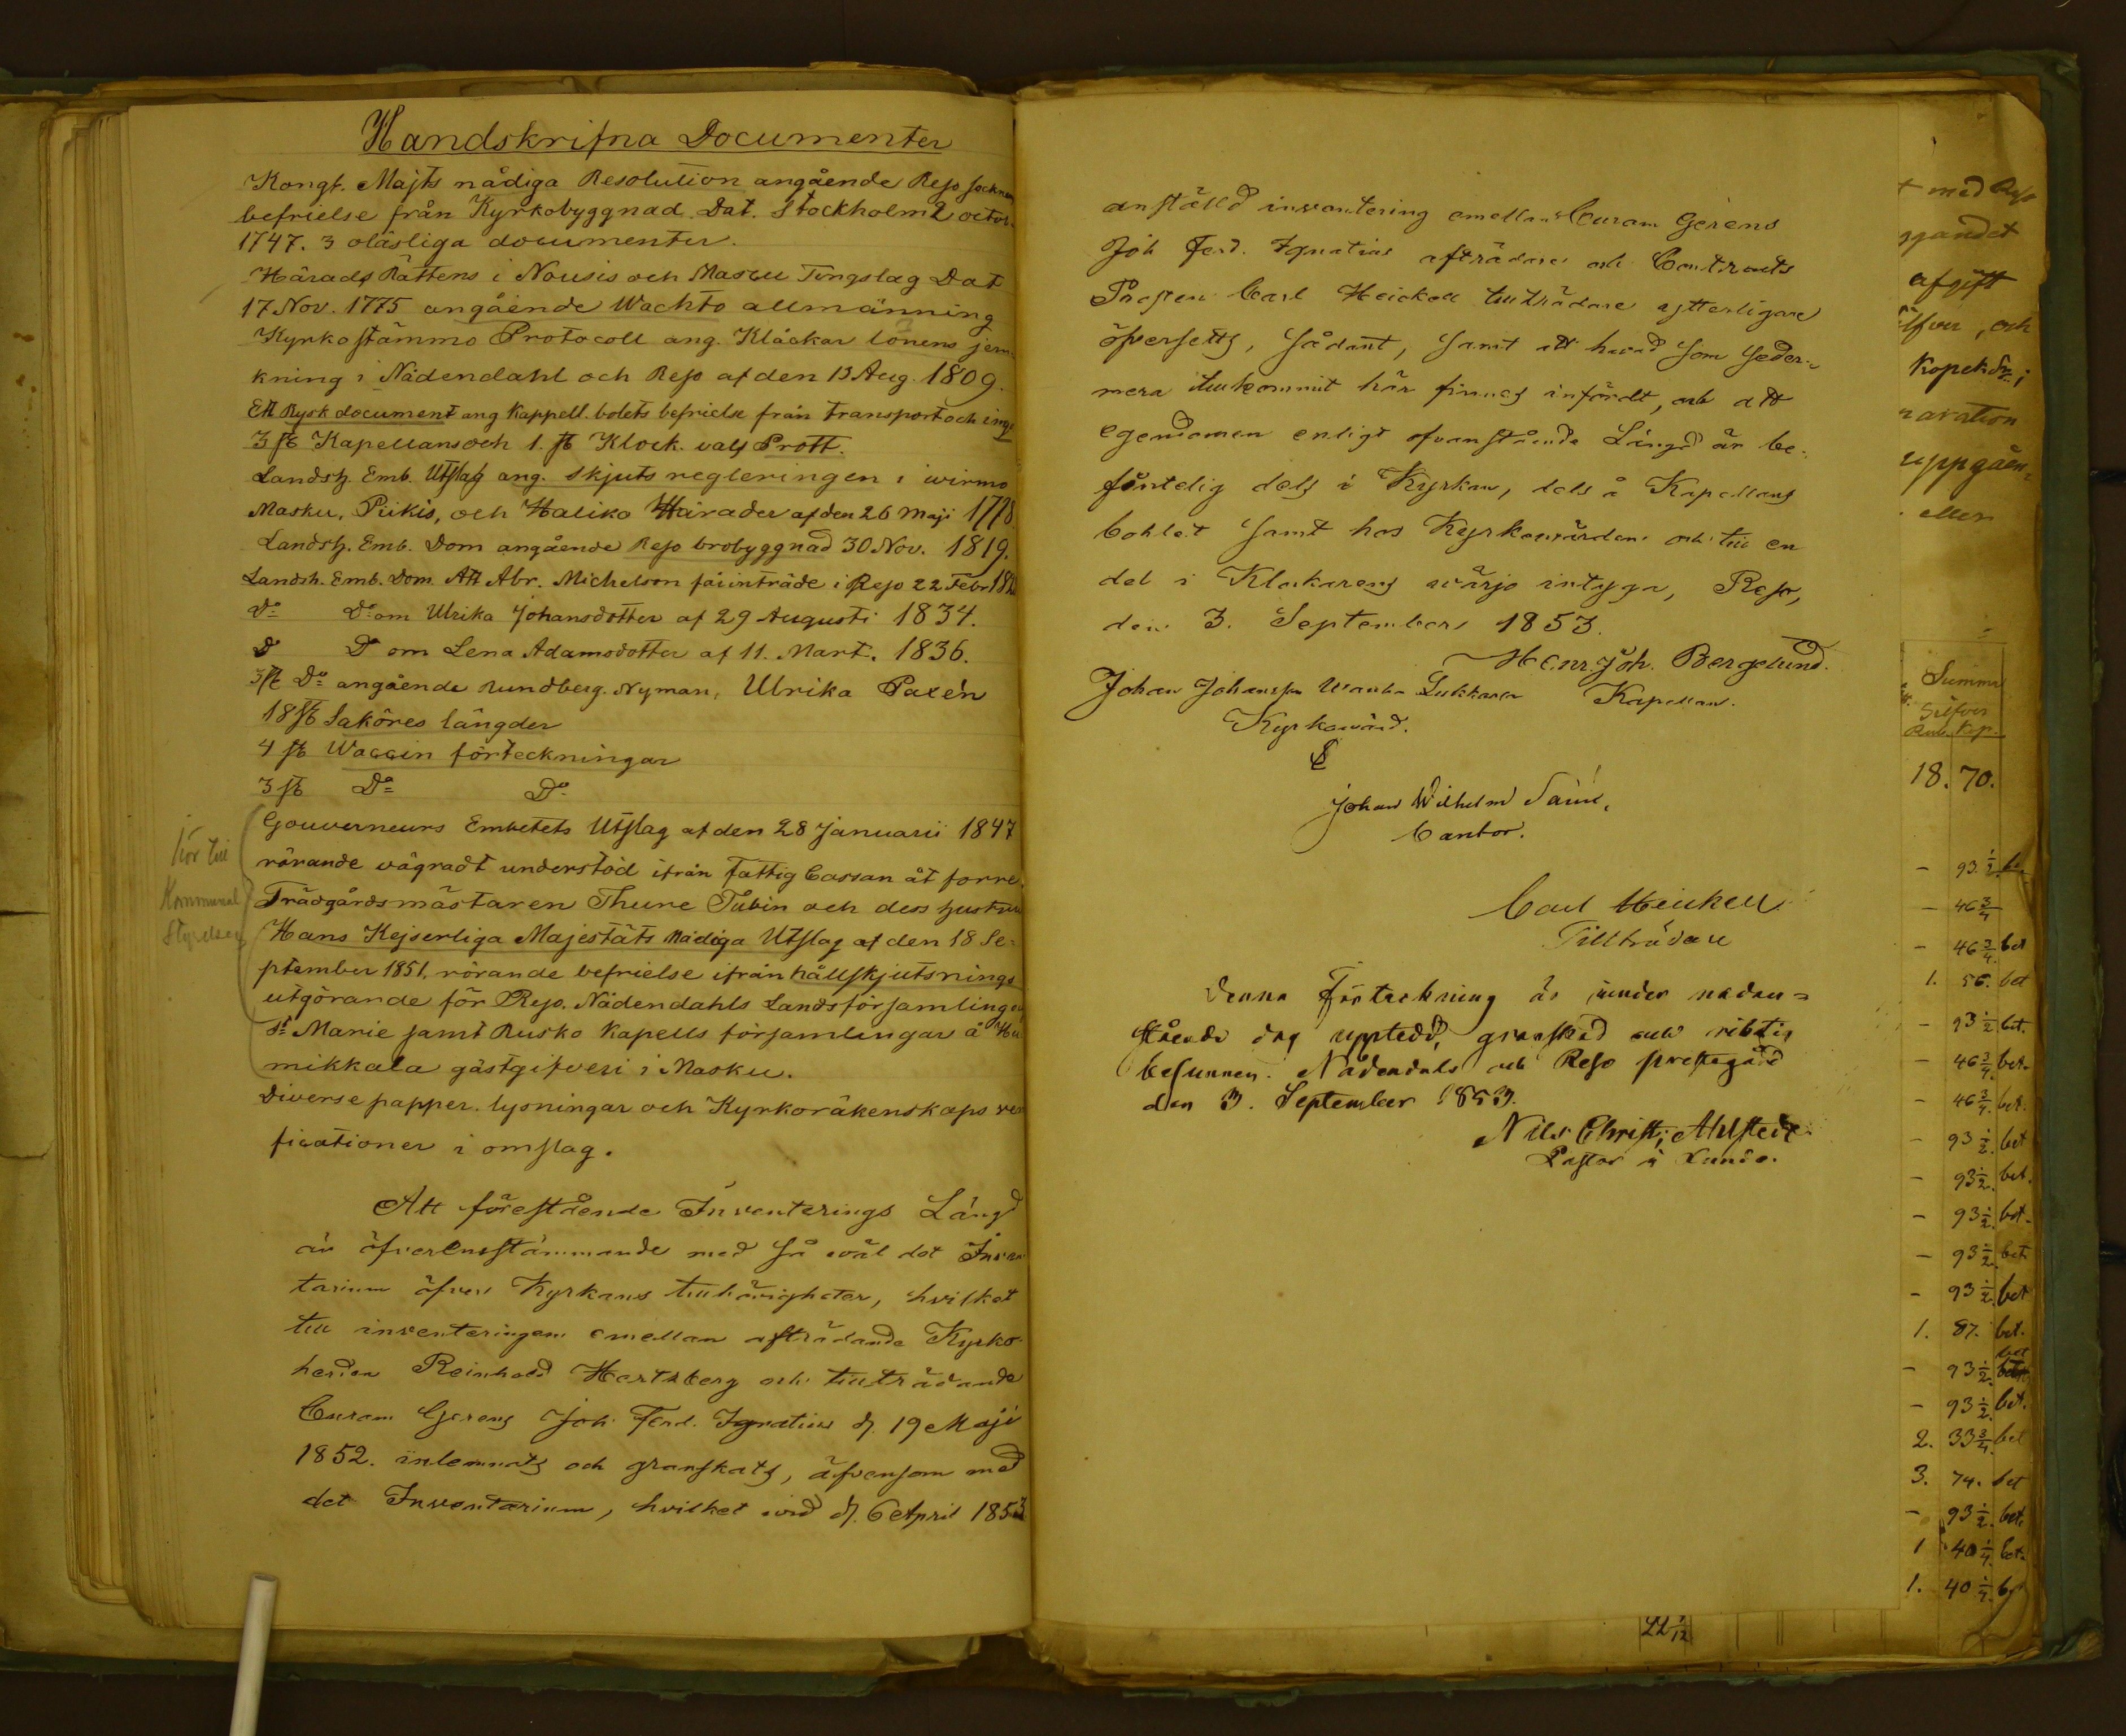 Handskrifna Documenter
Kongl. Majts nådiga Resolution angående Reso socknens
befrielse från Kyrkobyggnad Dat. Stockholm 2 octob.
1747. 3 oläsliga documenter.
Härads Rättens i Nousis och Mascu Tingslag Dat
17 Nov. 1775 angående Wachto allmänning
Kyrkostämmo Protocoll ang. Klåckar lönens jem-
kning i Nådendahl och Reso af den 13 Aug. 1809.
Ett Rysk document ang Kappell. bolets befrielse från transport och
3 st Kapellans och 1. st Klock. vals Prott.
Landsh. Emb. Utslag ang. skjuts regleringen i wirmo
Masku, Piikis, och Haliko Härader af den 26 Maji 1778.
Landsh. Emb. Dom angående Reso brobyggnad 30 Nov. 1819.
Landsh. Emb. Dom Att Abr. Michelson få inträde i Reso 22 Febr
Do Do om Ulrika Johansdotter af 29 Augusti 1834.
D D om Lena Adamsdotter af 11. Mart. 1836.
3 st Do angående Rundberg. Nyman, Ulrika Paxén
18 st Saköres längder
4 st Waccin förteckningar
3 st Do Do
Gouverneurs Embetets Utslag af den 28 Januarii 1847
rörande vägradt understöd ifrån fattig Cassan åt forre.
Trädgårdsmästaren Thure Tubin och dess hustru
Hans Kejserliga Majestäts Nådiga Utslag af den 18 Se-
ptember 1851. rörande befrielse ifrån hållskjutsnings
utgörande för Reso. Nådendahls Landsförsamlingen
St Marie samt Rusko Kapells församlingar å
mikkala gästgifveri i Masku.
Diverse papper. lysningar och Kyrkoräkenskaps ve
ficationer i omslag.
hör till
Kommunal
Styrelsen
Att förestående Inventerings Längd
är öfverensstämmande med så wäl det Inven
tarium öfver Kyrkans tillhörigheter, hvilket
till inventeringen emellan afträdande Kyrko-
herden Reinhold Hertzberg och tillträdande
Curam Gerens Joh. Ferd. Ignatius d. 19 Maji
1852. inlemnats och granskats, äfvensom med
det Inventarium, hvilket wid d. 6 April 1853
anstäld inventering emellan Curam Gerens
Joh Ferd. Ignatius afträdare och Contracts
Prosten Carl Heickell tillträdare ytterligare
öfversetts, sådant, samt att hvad som seder-
mera tillkommit här finnes infördt, och att
egendomen enligt ofvanstående Längd är be-
fintelig dels i Kyrkan, dels å Kapellans
bohlet samt hos Kyrkowärden och till en
del i Klockarens wärjo intyga, Reso,
den 3. September 1853.
Henr. Joh. Bergelund.
Kapellan.
Johan Johansson
Kyrkowärd.
Johan Wilhelm
Cantor.
Carl Heickell
Tillträdare
Denna Förteckning är under nedan-
stående dag upptedd, granskad och riktig
befunnen. Nådendals och Reso prestegård
den 3. September 1853.
Nils Christ; Ahlstedt
Pastor i Lundo.
t med Reso
ggandet
afgift
ilfver, och
kopek
aration
uppgåen-
eller
Summa
Silfver
Rub. Kop.
18. 70.
- 93 1/2
- 46 3/4
- 46 3/4 bet
1. 56. bet
- 93 1/2 bet.
- 46 3/4 bet.
- 46 3/4. bet.
- 93 1/2. bet
- 93 1/2. bet.
- 93 1/2. bet.
- 93 1/2. bet
- 93 1/2. bet
1. 87. bet.
- 93 1/2. bet
- 93 1/2. bet.
2. 33 3/4. bet
3. 74. bet
- 93 1/2. bet.
1 40 1/4. bet.
1. 40 1/4.